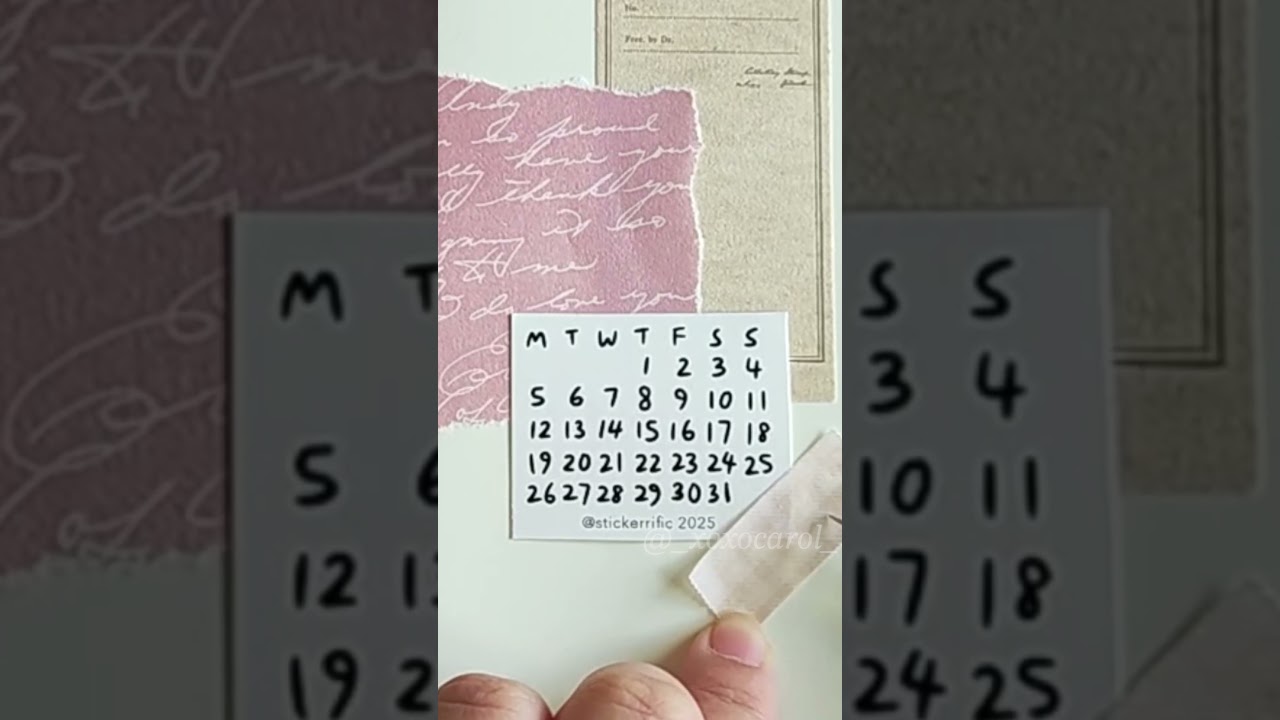 No.
Prec. by Dr.
Andy
so proud
have your
Thank you
it so
me
I do love you
M T W T F S S
1 2 3 4
5 6 7 8 9 10 11
12 13 14 15 16 17 18
19 20 21 22 23 24 25
26 27 28 29 30 31
@stickerrific 2025
@_xoxocarol_